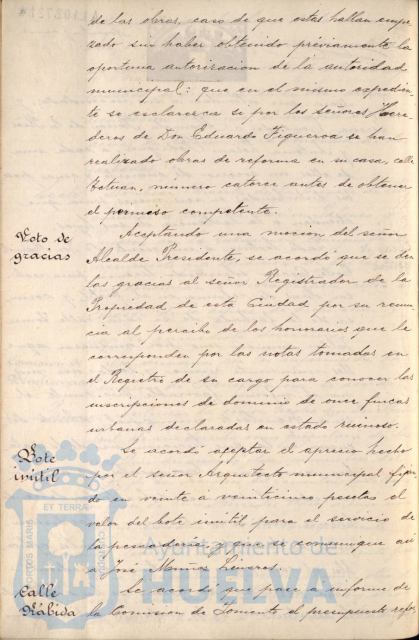 de las obras, caso de que estas hallan empe
zado sin haber obtenido préviamente la
oportuna autorizacion de la autoridad
municipal: que en el mismo expedien
te se esclarezca si por los señores Here
deros de Don Eduardo Figueroa se han
realizado obras de reforma en su casa, calle
Tetuan, número catorce antes de obtener
el permiso competente.
Voto de
gracias
Aceptando una mocion del señor
Alcalde Presidente, se acordó que se den
las gracias al señor Registrador de la
Propiedad de esta Ciudad por su renun
cia al percibo de los honorarios que le
corresponden por las notas tomadas en
el Registro de su cargo para conocer las
inscripciones de dominio de once fincas
urbanas declaradas en estado ruinoso.
Bote
inútil
Se acordó aceptar el aprecio hecho
por el señor Arquitecto municipal fijan
do en veinte a veinticinco pesetas el
valor del bote inútil para el servicio de
la pescadería y que se comunique asi
a José Muñoz
Calle
Rábida
Se acordó que pase a informe de
la Comision de Fomento el presupuesto refor
PORTUS MARIS
ET TERRÆ
CUSTODIA
Ayuntamiento de
HUELVA